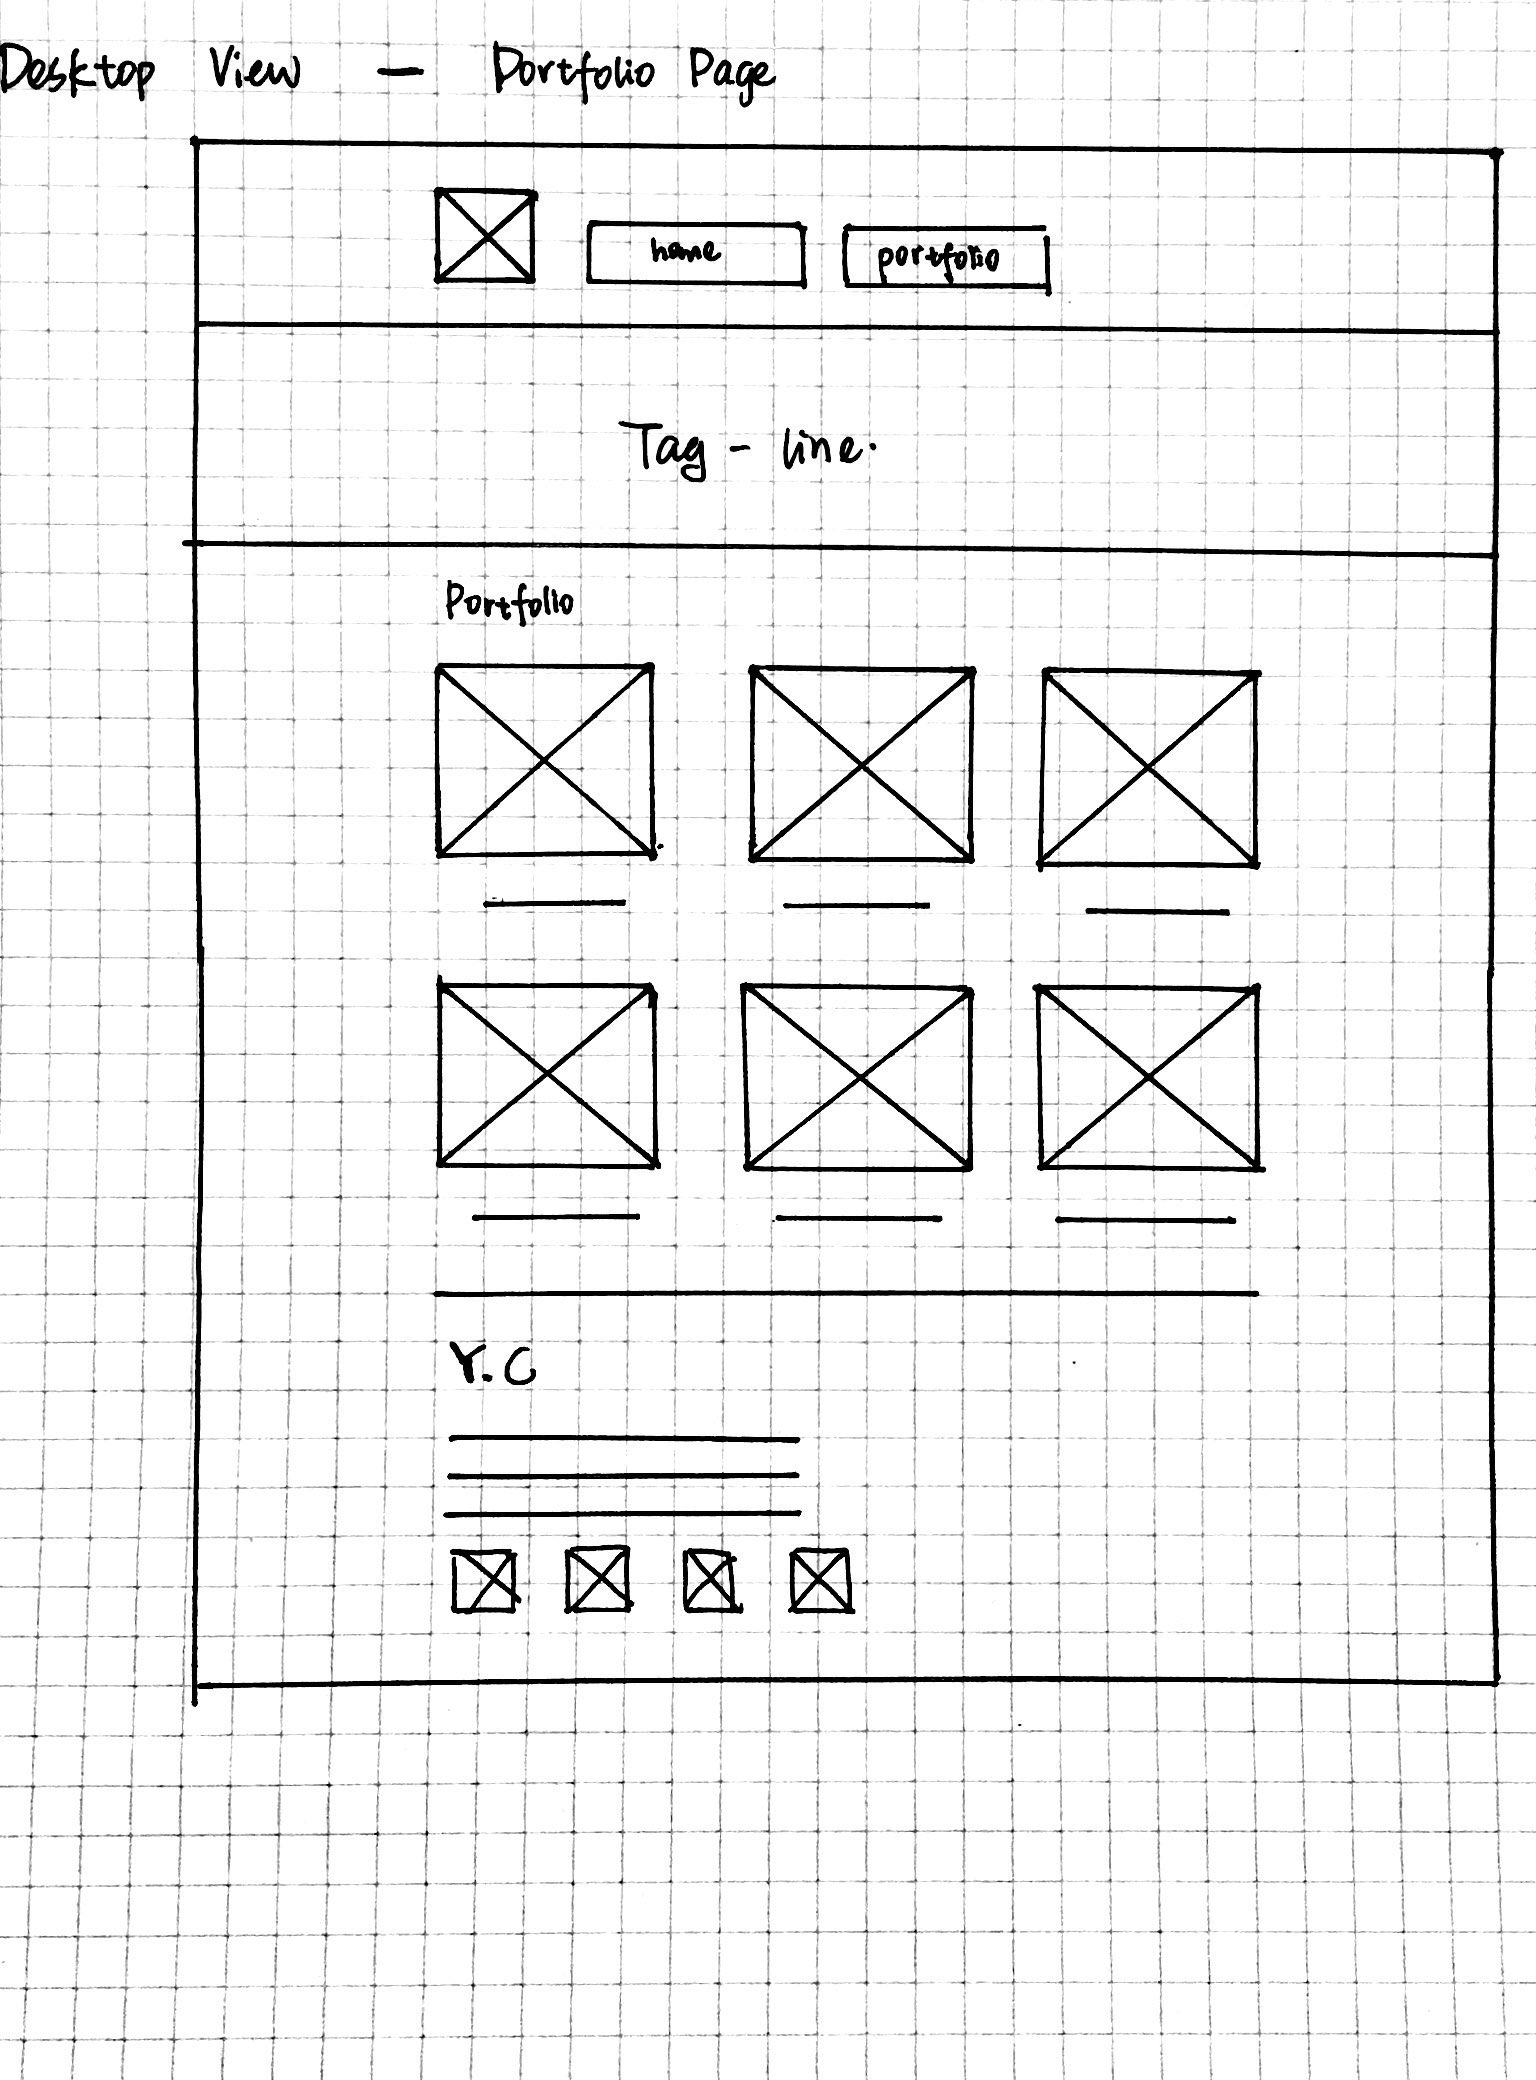 Desktop View — Portfolio Page
home
portfolio
Tag - line.
Portfolio
Y.C